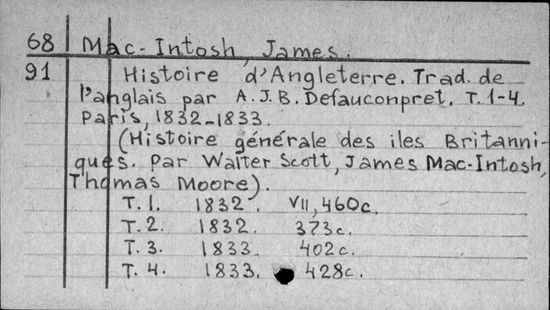 68 Mac-Intosh, James.
91 Histoire d'Angleterre. Trad. de
l'anglais par A.J.B. Defauconpret. T. 1-4.
Paris, 1832-1833.
(Histoire générale des iles Britanni-
ques. Par Walter Scott, James Mac-Intosh,
Thomas Moore).
T. 1. 1832. VII, 460c.
T. 2. 1832. 373c.
T. 3. 1833. 402c.
T. 4. 1833. 428c.